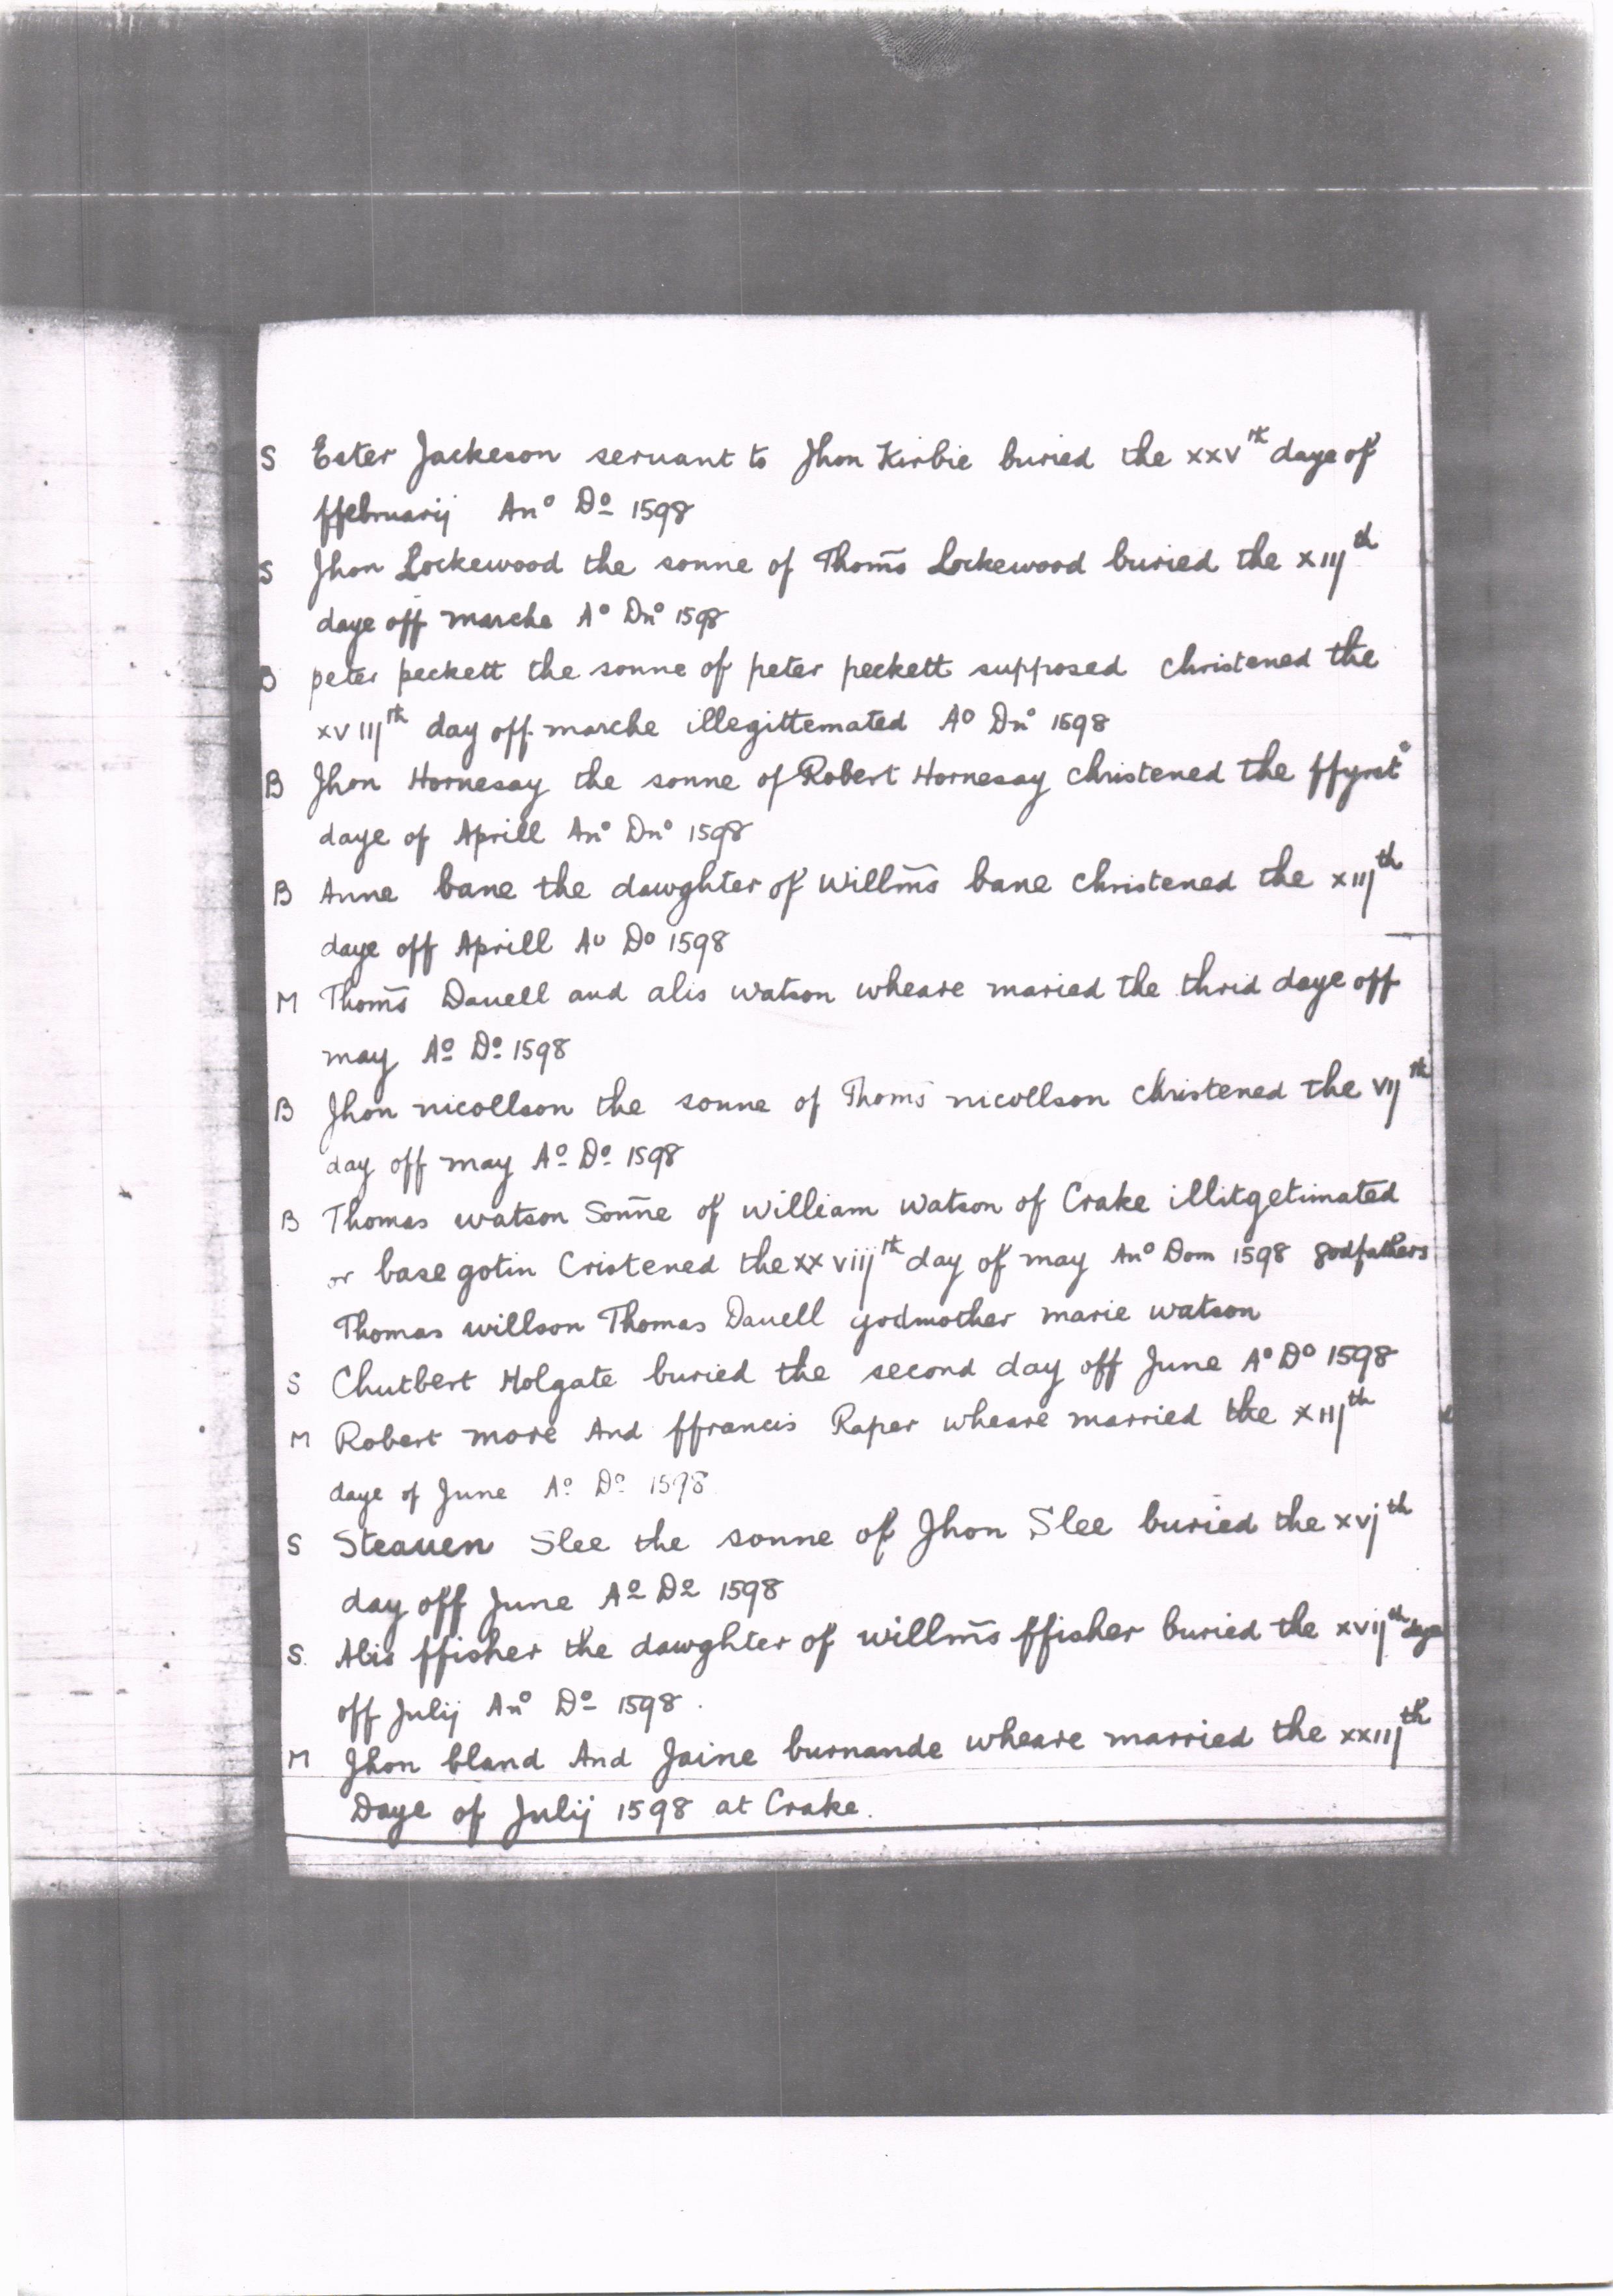 S Ester Jackeson seruant to Jhon Kirbie buried the xxvth daye of
ffebruarij Anº Dº 1598
S Jhon Lockewood the sonne of Thom̄s Lockewood buried the xiijth
daye off marche Aº Dnº 1598
B peter peckett the sonne of peter peckett supposed christened the
xviijth day off marche illegittemated Aº Dnº 1598
B Jhon Hornesay the sonne of Robert Hornesay christened the ffyrst
daye of Aprill Anº Dnº 1598
B Anne bane the dawghter of willm̄s bane christened the xiijth
daye off Aprill Aº Dº 1598
M Thom̄s Dauell and alis watson wheare maried the thrid daye off
may Aº Dº 1598
B Jhon nicollson the sonne of Thom̄s nicollson christened the vijth
day off may Aº Dº 1598
B Thomas watson Son̄ne of william watson of Crake illitgetimated
or base gotin Cristened the xxviijth day of may Anº Dom 1598 godfathers
Thomas willson Thomas Dauell godmother marie watson
S Chutbert Holgate buried the second day off June Aº Dº 1598
M Robert more And ffrancis Raper wheare married the xiijth
daye of June Aº Dº 1598
S Steauen Slee the sonne of Jhon Slee buried the xvjth
day off June Aº Dº 1598
S. Alis ffisher the dawghter of willm̄s ffisher buried the xvijth daye
off Julij Anº Dº 1598.
M Jhon bland And Jaine burnande wheare married the xxiijth
Daye of Julij 1598 at Crake.